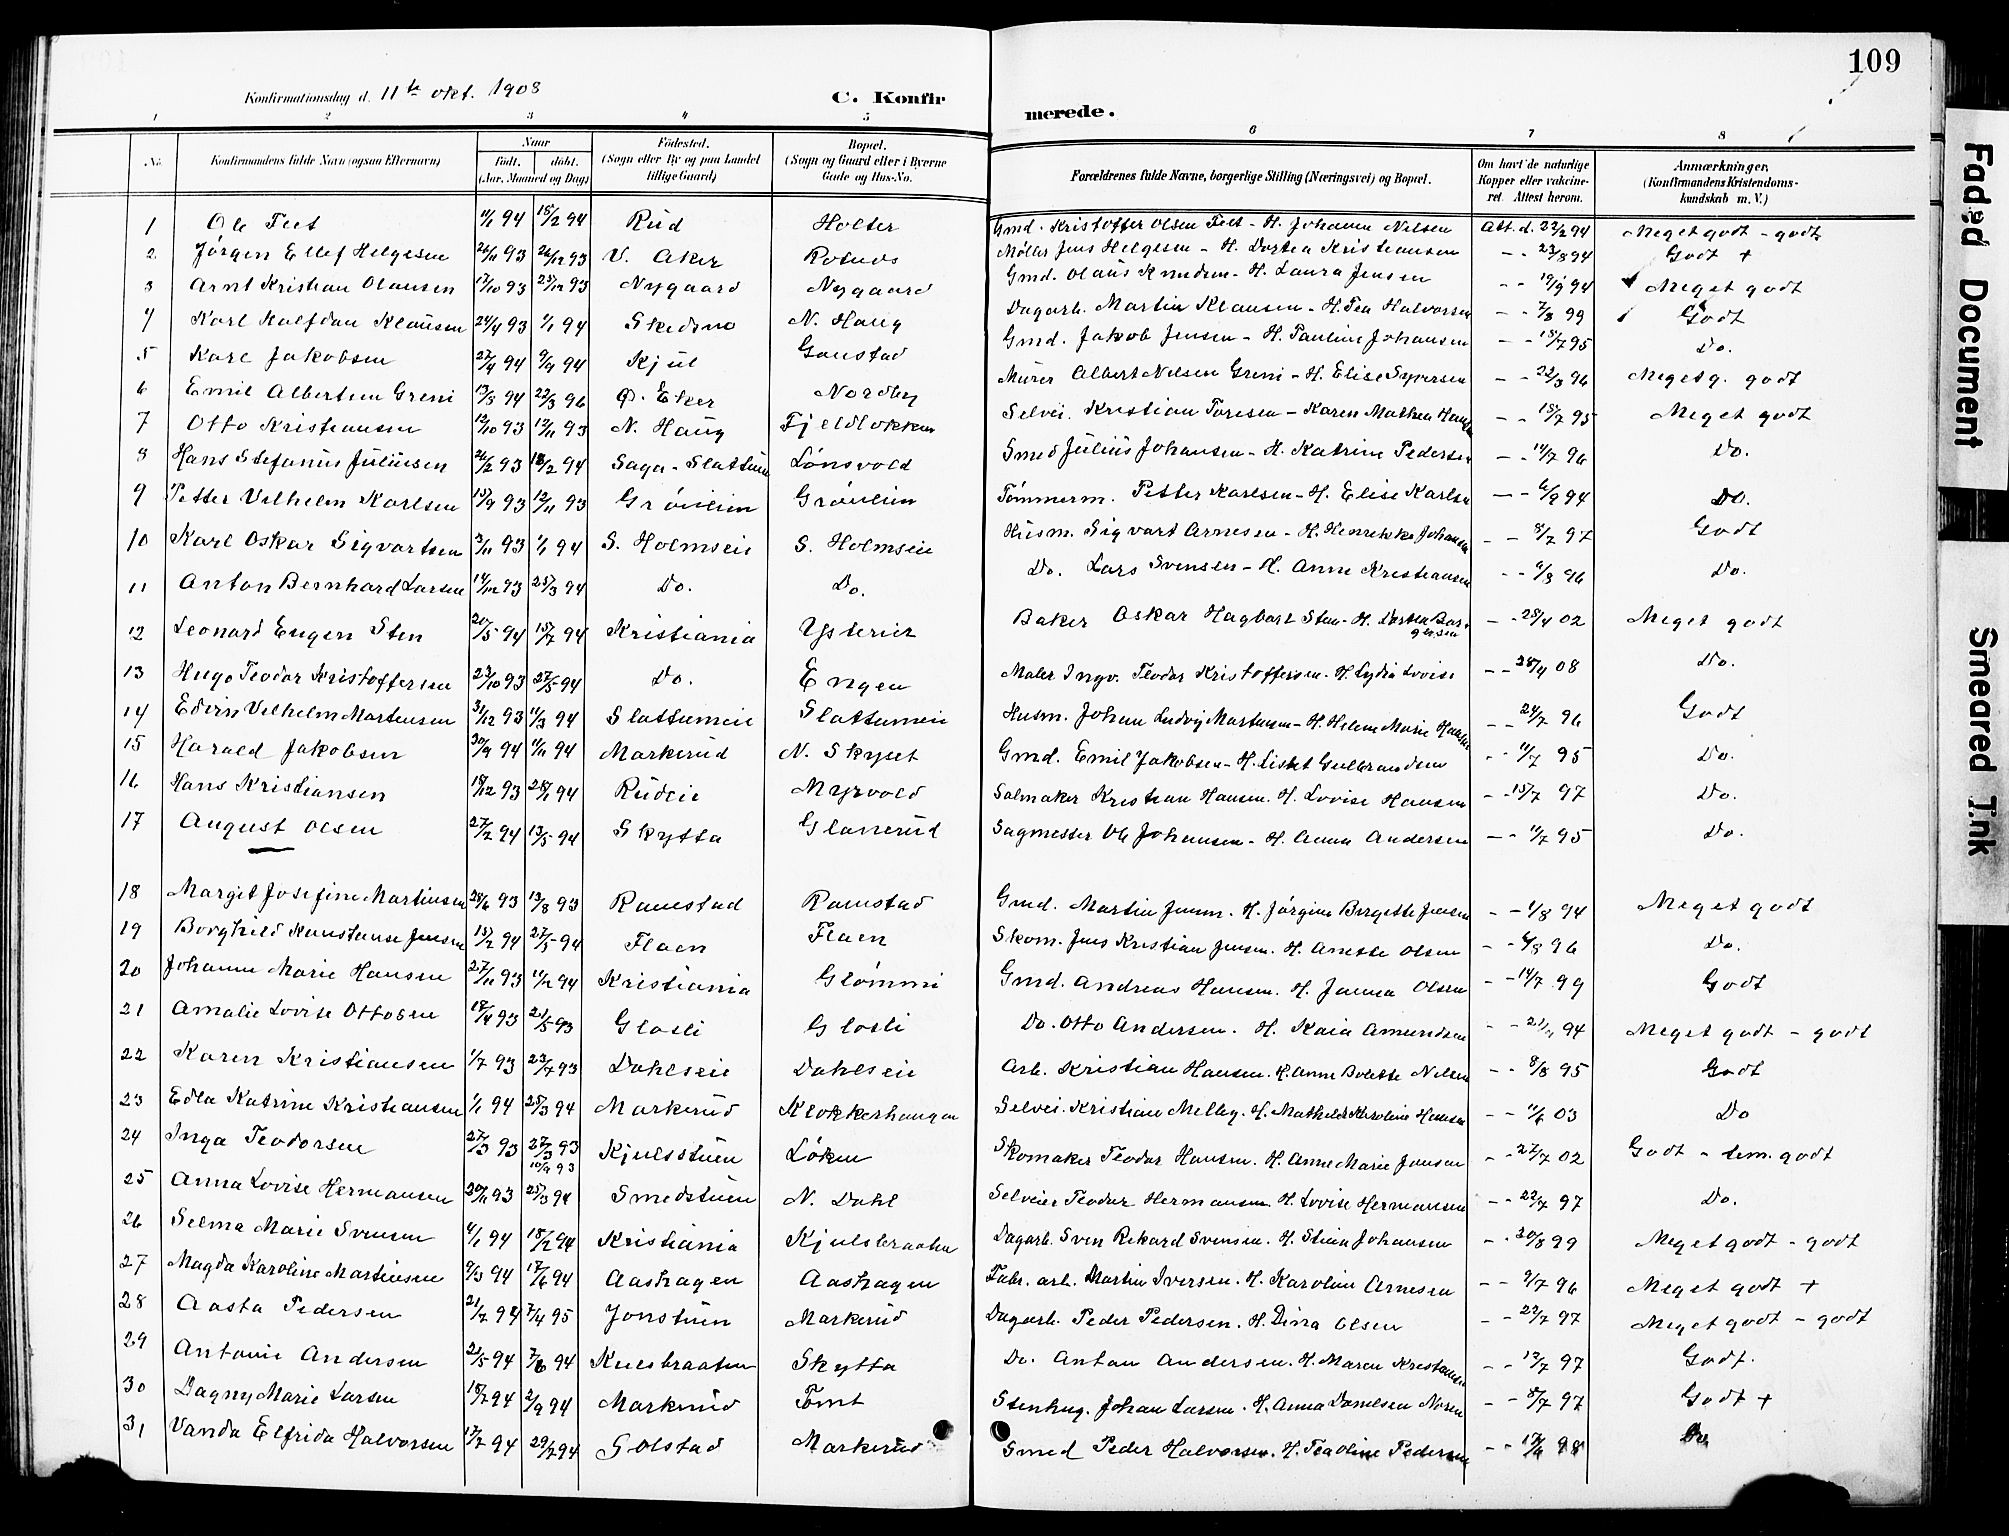 109
Konfirmationsdag d. 11te okt. 1908
C. Konfirmerede.
1 2 3 4 5 6 7 8
No. Konfirmandens fulde Navn (ogsaa Efternavn) Naar født. døbt. (Aar, Maaned og Dag) Fødested. (Sogn eller By og paa Landet tillige Gaard) Bopæl. (Sogn og Gaard eller i Byerne Gade og Hus-No. Forældrenes fulde Navne, borgerlige Stilling (Næringsvei) og Bopæl. Om havt de naturlige Kopper eller vakcineret. Attest herom. Anmærkninger, (Konfirmandens Kristendomskundskab m. V.)
1 Ole Teet 11/1 94 18/2 94 Rud Holter Gmd. Kristoffer Olsen Teet - H. Johanne Nilsen Att. d. 22/2 94 Meget godt - godt
2 Jørgen Ellef Helgesen 24/11 93 26/12 93 V. Aker Rotnes Møller Jens Helgesen - H. Dortea Kristiansen - - 23/8 94 Godt +
3 Arnt Kristian Olausen 17/10 93 25/12 93 Nygaard Nygaard Gmd. Olaus Knudsen - H. Laura Jensen - - 19/9 94 Meget godt
4 Karl Halfdan Klausen 24/4 93 1/1 94 Skedsmo N. Haug Dagarb. Martin Klausen - H. Tea Halvorsen - - 7/8 99 Godt
5 Karl Jakobsen 27/4 94 9/9 94 Kjul Gaustad Gmd. Jakob Jensen - H. Pauline Johansen - - 15/7 95 Do.
6 Emil Albertsen Greni 13/3 94 22/3 96 Ø. Eker Nordby Murer Albert Nilsen Greni - H. Elise Syversen - - 22/3 96 Meget g. godt
7 Otto Kristiansen 12/10 93 12/11 93 N. Haug Fjeldløkken Selvei. Kristian Toresen - Karen Mathea Hansen - - 15/7 95 Meget godt
8 Hans Stefanus Juliusen 26/12 93 18/2 94 Saga - Slattum Lønsvold Smed Julius Johansen - H. Katrine Pedersen - - 14/7 96 Do.
9 Petter Vilhelm Karlsen 15/9 93 12/11 93 Grønlien Grønlien Tømmerm. Petter Karlsen - H. Elise Karlsen - - 6/9 94 Do.
10 Karl Oskar Sigvartsen 3/11 93 1/1 94 S. Holmseie S. Holmseie Husm. Sigvart Arnesen - H. Henrikke Johansen - - 8/7 97 Godt
11 Anton Bernhard Larsen 14/12 93 25/3 94 Do. Do. Do. Lars Svensen - H. Anne Kristiansen - - 9/8 96 Do.
12 Leonard Eugen Sten 20/5 94 15/7 94 Kristiania Ysterier Baker Oskar Hagbart Sten - H. - - 28/4 02 Meget godt
13 Hugo Teodor Kristoffersen 23/10 93 27/5 94 Do. Engen Maler Ingv. Teodor Kristoffersen. H. Lydia Lovise - - 28/4 08 Do.
14 Edvin Vilhelm Martinsen 31/12 93 11/3 94 Slattumeie Slattumeie Husm. Johan Ludvig Martinsen - H. Helene Marie Hansen - - 24/7 96 Godt
15 Harald Jakobsen 30/9 94 11/11 94 Markerud N. Skyset Gmd. Emil Jakobsen - H. Lisbet Gulbrandsen - - 11/7 95 Do.
16 Hans Kristiansen 18/12 93 28/1 94 Rudeie Myrvold Salmaker Kristian Hansen. H. Lovise Hansen - - 15/7 97 Do.
17 August Olsen 27/2 94 13/5 94 Skytta Glanerud Sagmester Ole Johansen - H. Anna Andersen - - 11/7 95 Do.
18 Margit Josefine Martinsen 28/6 93 13/8 93 Ramstad Ramstad Gmd. Martin Jensen. H. Jørgine Bergette Jensen - - 1/8 94 Meget godt
19 Borghild Konstanse Jensen 15/2 94 27/5 94 Flaen Flaen Skom. Jens Kristian Jensen. H. Anette Olsen - - 6/8 96 Do.
20 Johanne Marie Hansen 27/11 93 11/2 94 Kristiania Glømmi Gmd. Andreas Hansen. H. Janna Olsen - - 14/7 99 Godt
21 Amalie Lovise Ottosen 18/4 93 21/5 93 Glosli Glosli Do. Otto Andersen. H. Kaia Amundsen - - 21/11 94 Meget godt - godt
22 Karen Kristiansen 1/7 93 23/7 93 Dahlseie Dahlseie Arb. Kristian Hansen. H. Anne Bolette Nilsen - - 8/8 95 Godt
23 Edla Katrine Kristiansen 1/1 94 25/3 94 Markerud Klokkerhaugen Selvei. Kristian Melleg. H. Mathilde Karoline Hansen - - 11/6 03 Do
24 Inga Teodorsen 27/3 93 27/3 93 10/9 93 Kjulsstuen Løken Skomaker Teodor Hansen. H. Anne Marie Jensen - - 27/7 02 Godt - tem. godt
25 Anna Lovise Hermansen 20/11 93 25/3 94 Smedstuen N. Dahl Selveier Teodor Hermansen. H. Lovise Hermansen - - 22/7 97 Do.
26 Selma Marie Svensen 4/1 94 18/2 94 Kristiania Kjulsbraaten Dagarb. Sven Rikard Svensen. H. Stina Johansen - - 20/8 99 Meget godt - godt
27 Magda Karoline Martinsen 9/3 94 17/6 94 Aashagen Aashagen Fabr. arb. Martin Iversen. H. Karoline Arnesen - - 9/7 96 Meget godt +
28 Aasta Pedersen 21/7 94 7/4 95 Jonstuen Markerud Dagarb. Peder Pedersen. H. Dina Olsen - - 22/7 97 Meget godt - godt
29 Antonie Andersen 21/5 94 7/6 94 Kulsbraaten Skytta Do. Anton Andersen. H. Maren Kristiansen - - 13/7 97 Godt.
30 Dagny Marie Larsen 18/7 94 2/9 94 Markerud Tomt Stenhug. Johan Larsen. H. Anna Danielsen - - 8/7 97 Godt +
31 Vanda Elfrida Halvorsen 17/2 94 29/7 94 Golstad Markerud Smed Peder Halvorsen. H. Teoline Pedersen - - 17/6 98 Do
Faded Document
Smeared Ink